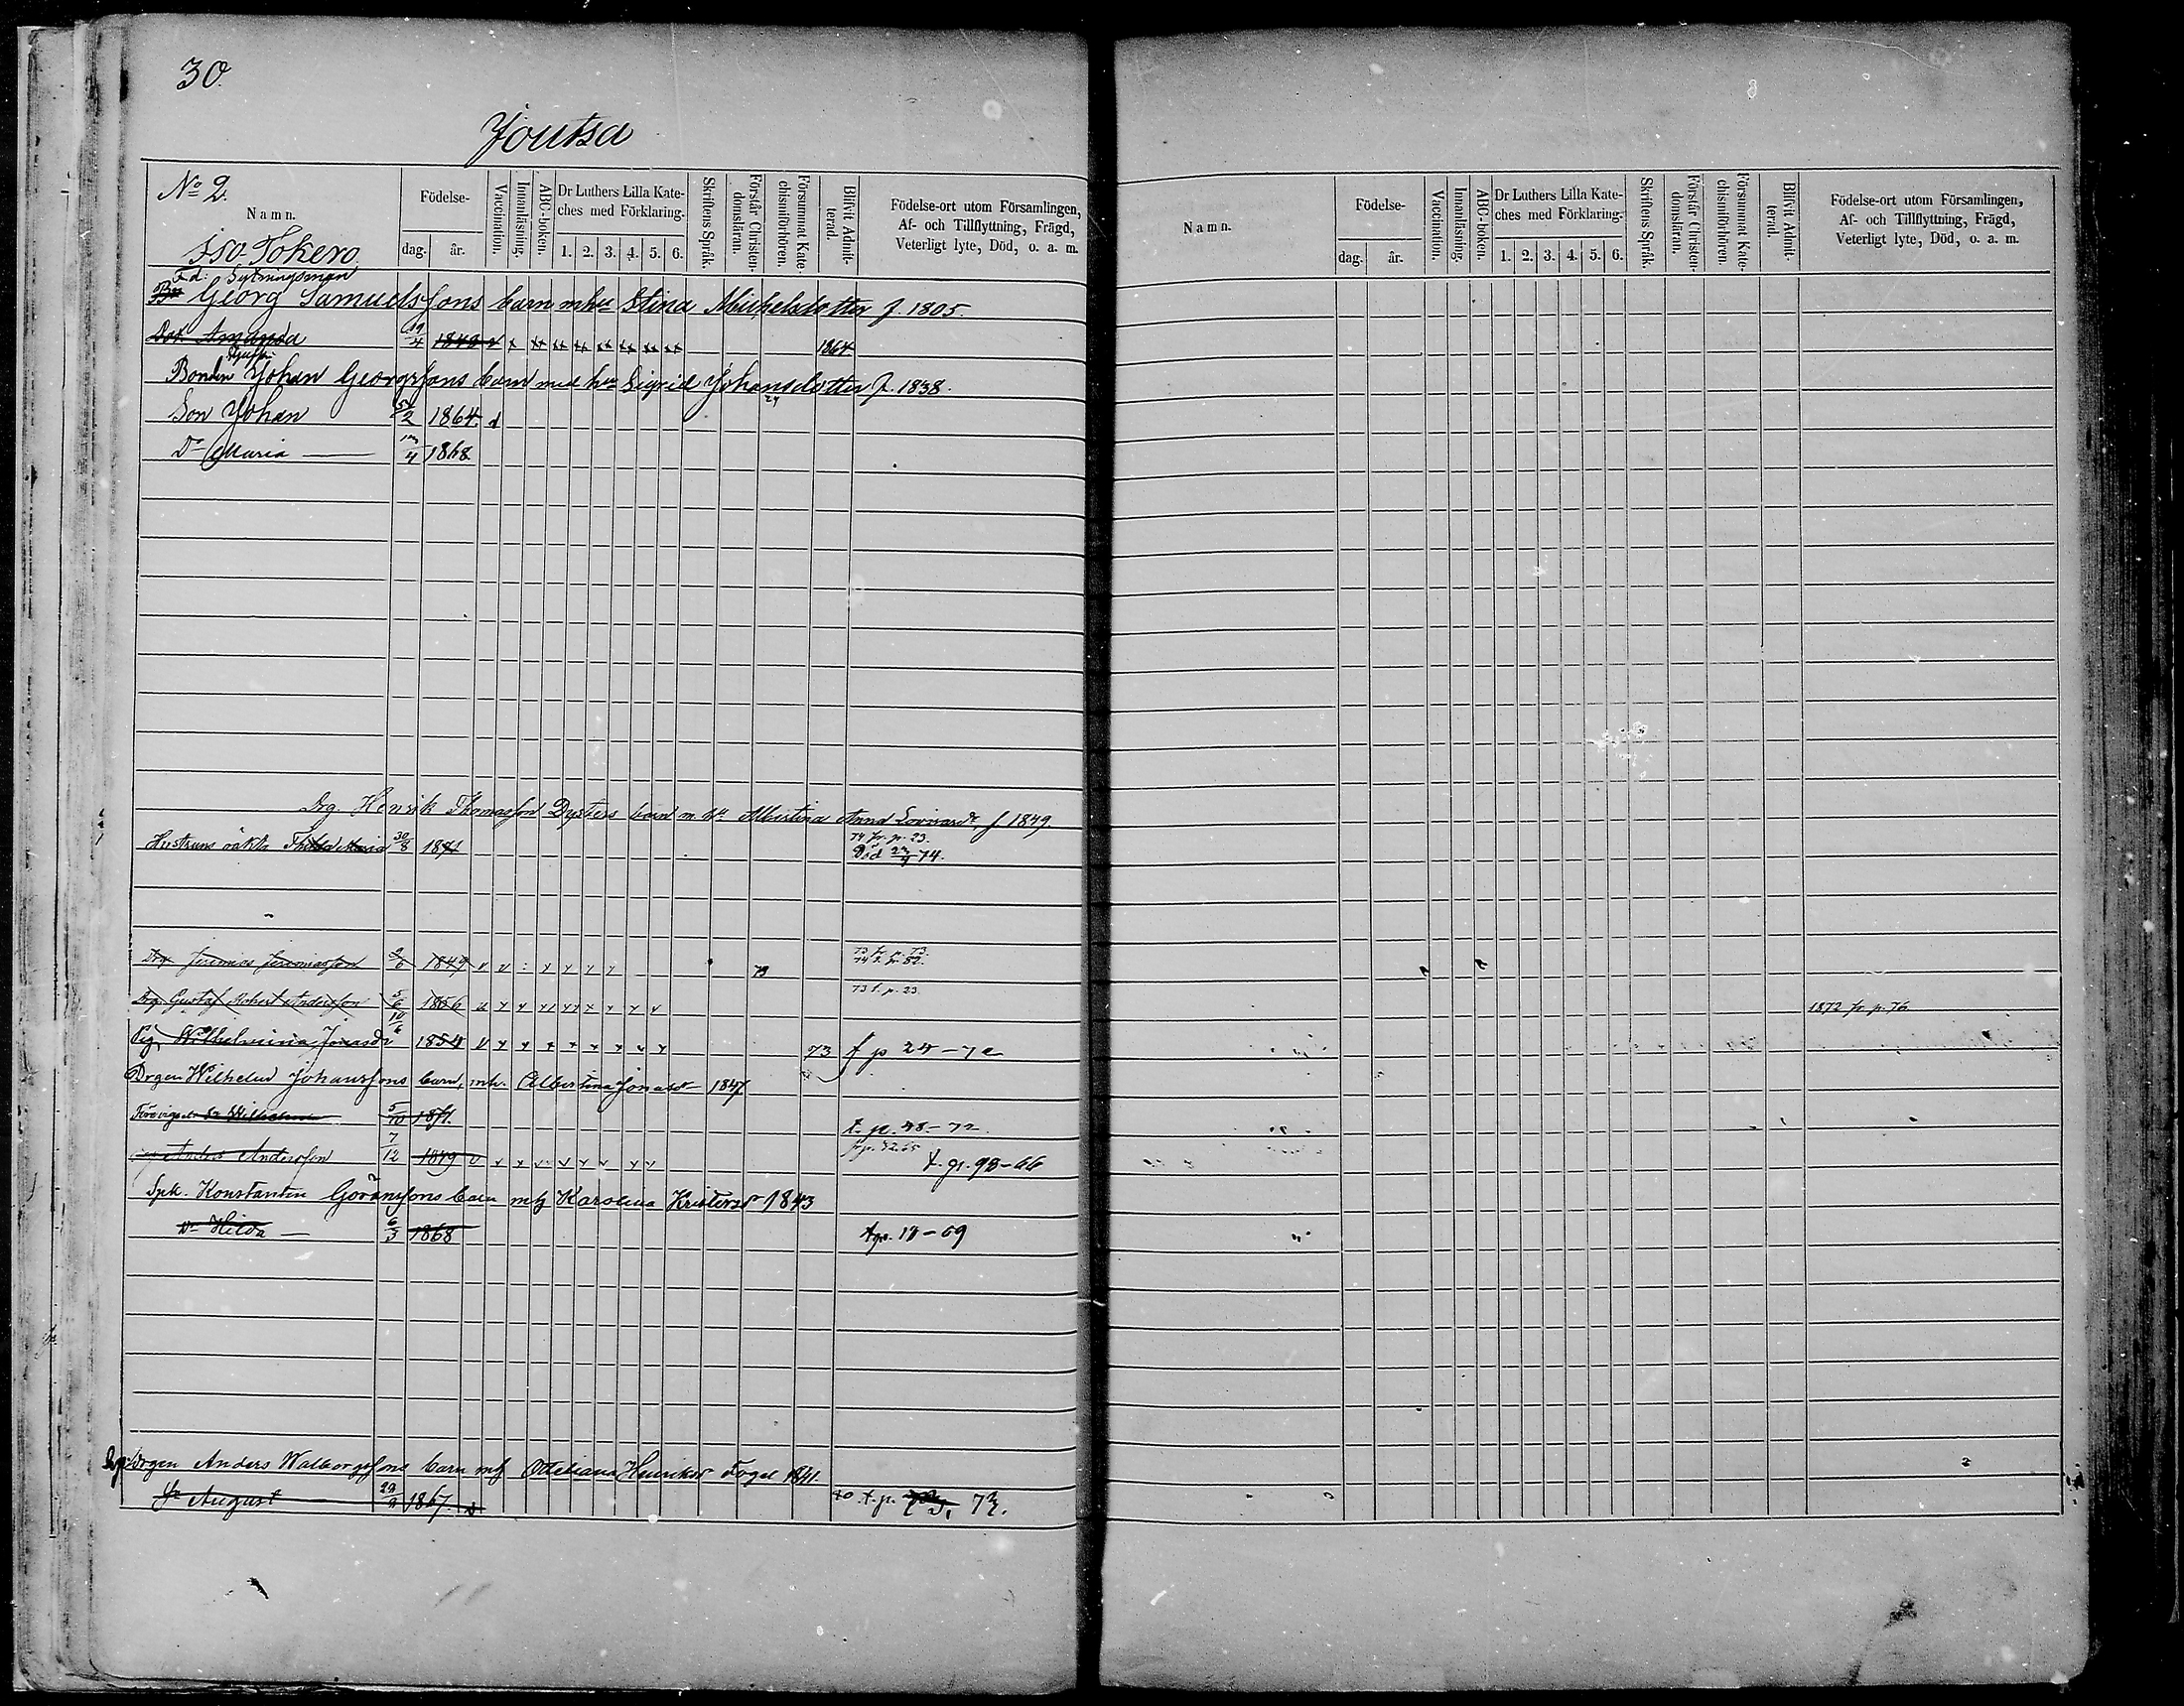 30.
Joutsa
No 2.
Namn.
Iso-Tokero
Födelse-
dag.
år.
Vaccination.
Innanläsning.
ABC-boken.
Dr Luthers Lilla Kate-
ches med Förklaring.
1. 2. 3. 4. 5. 6.
Skriftens Språk.
Förstår Christen-
domsläran.
Försummat Kate-
chismiförhören.
Blifvit Admit-
terad.
Födelse-ort utom Församlingen,
Af- och Tillflyttning, Frägd,
Veterligt lyte, Död, o. a. m.
F.d. Sytningsman
Georg Samuelssons barn mhu Stina Michelsdotter f. 1805.
Dot. Amanda 19/4 1848 1864
Bonden Johan Georgssons barn med hu Sigrid Johansdotter f. 1838
Son Johan 2 1864.
Dr Maria 4 1868
Drg. Henrik Thomasson Dysters barn m. hu Albertina Anna Lovisardr f. 1849.
Hustruns oäkta Maria 30/8 1871 74 fr. p. 23.
Död 74.
Drg Jeremias Jeremiasson 6 1849 73
Drg. Gustaf Robert Andersson 5/6 1856 73 t. p. 23.
1872 fr p. 76
Pig. Wilhelmina Jonasdr 10/6 1854 73 f p 24-72
Drgen Wilhelm Johanssons barn, mh. Albertina Jonasdr 1847
5/10 1871. t. p. 48-72.
Anders Andersson 7/12 1849 t. p. 98-66
Spk. Konstantin Göranssons barn mh Karolina Kristersdr 1843
Dr Hilda 6/3 1868 t p. 18-69
Drgen Anders Walborgssons barn mh Ottiliana Henriksdr Fogel 1841.
Sn August 29 1867. t. p. 73.
Namn.
Födelse-
dag.
år.
Vaccination.
Innanläsning.
ABC-boken.
Dr Luthers Lilla Kate-
ches med Förklaring.
1. 2. 3. 4. 5. 6.
Skriftens Språk.
Förstår Christen-
domsläran.
Försummat Kate-
chismiförhören.
Blifvit Admit-
terad.
Födelse-ort utom Församlingen,
Af- och Tillflyttning, Frägd,
Veterligt lyte, Död, o. a. m.